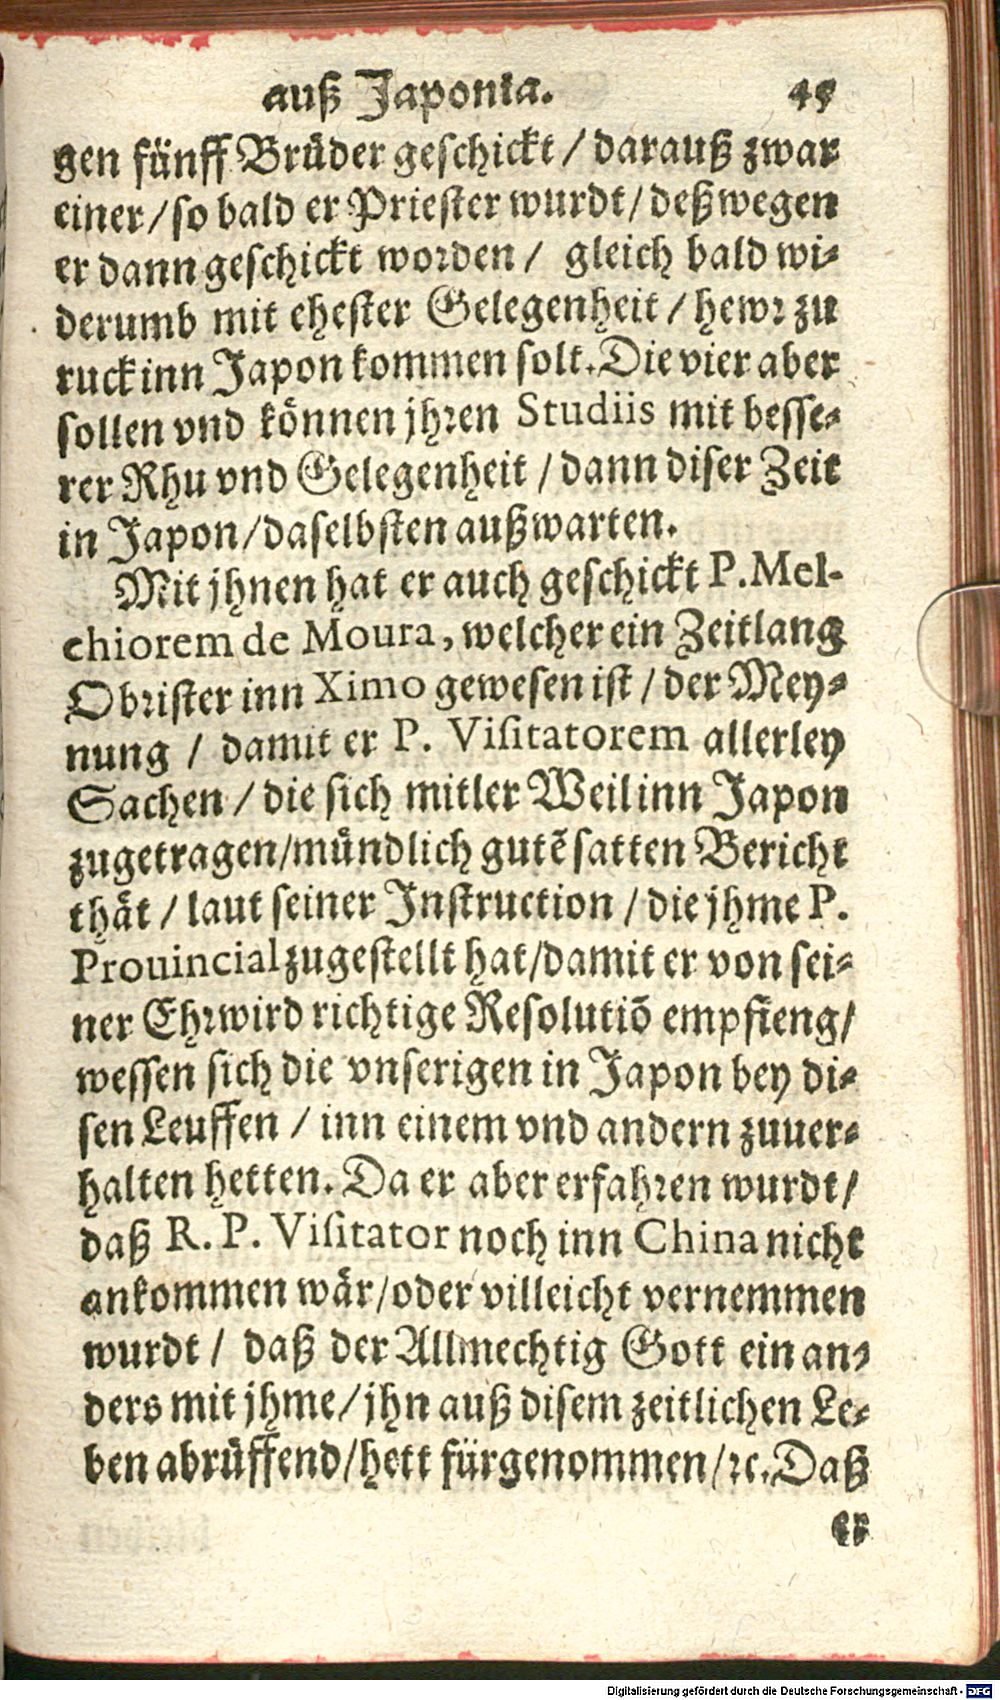 auß Japonia. 45
gen fünff Brüder geschickt / darauß zwar
einer / so bald er Priester wurdt / deßwegen
er dann geschickt worden / gleich bald wi-
derumb mit ehester Gelegenheit / hewr zu
ruck inn Japon kommen solt. Die vier aber
sollen vnd können jhren Studiis mit besse-
rer Rhu vnd Gelegenheit / dann diser Zeit
in Japon / daselbsten außwarten.
Mit jhnen hat er auch geschickt P. Mel-
chiorem de Moura, welcher ein Zeitlang
Obrister inn Ximo gewesen ist / der Mey-
nung / damit er P. Visitatorem allerley
Sachen / die sich mitler Weil inn Japon
zugetragen / mündlich gutē satten Bericht
thät / laut seiner Instruction / die jhme P.
Prouincial zugestellt hat / damit er von sei-
ner Ehrwird richtige Resolutiō empfieng /
wessen sich die vnserigen in Japon bey di-
sen Leuffen / inn einem vnd andern zuuer-
halten hetten. Da er aber erfahren wurdt /
daß R. P. Visitator noch inn China nicht
ankommen wär / oder villeicht vernemmen
wurdt / daß der Allmechtig Gott ein an-
ders mit jhme / jhn auß disem zeitlichen Le-
ben abrüffend / hett fürgenommen / ꝛc. Daß
er
Digitalisierung gefördert durch die Deutsche Forschungsgemeinschaft - DFG